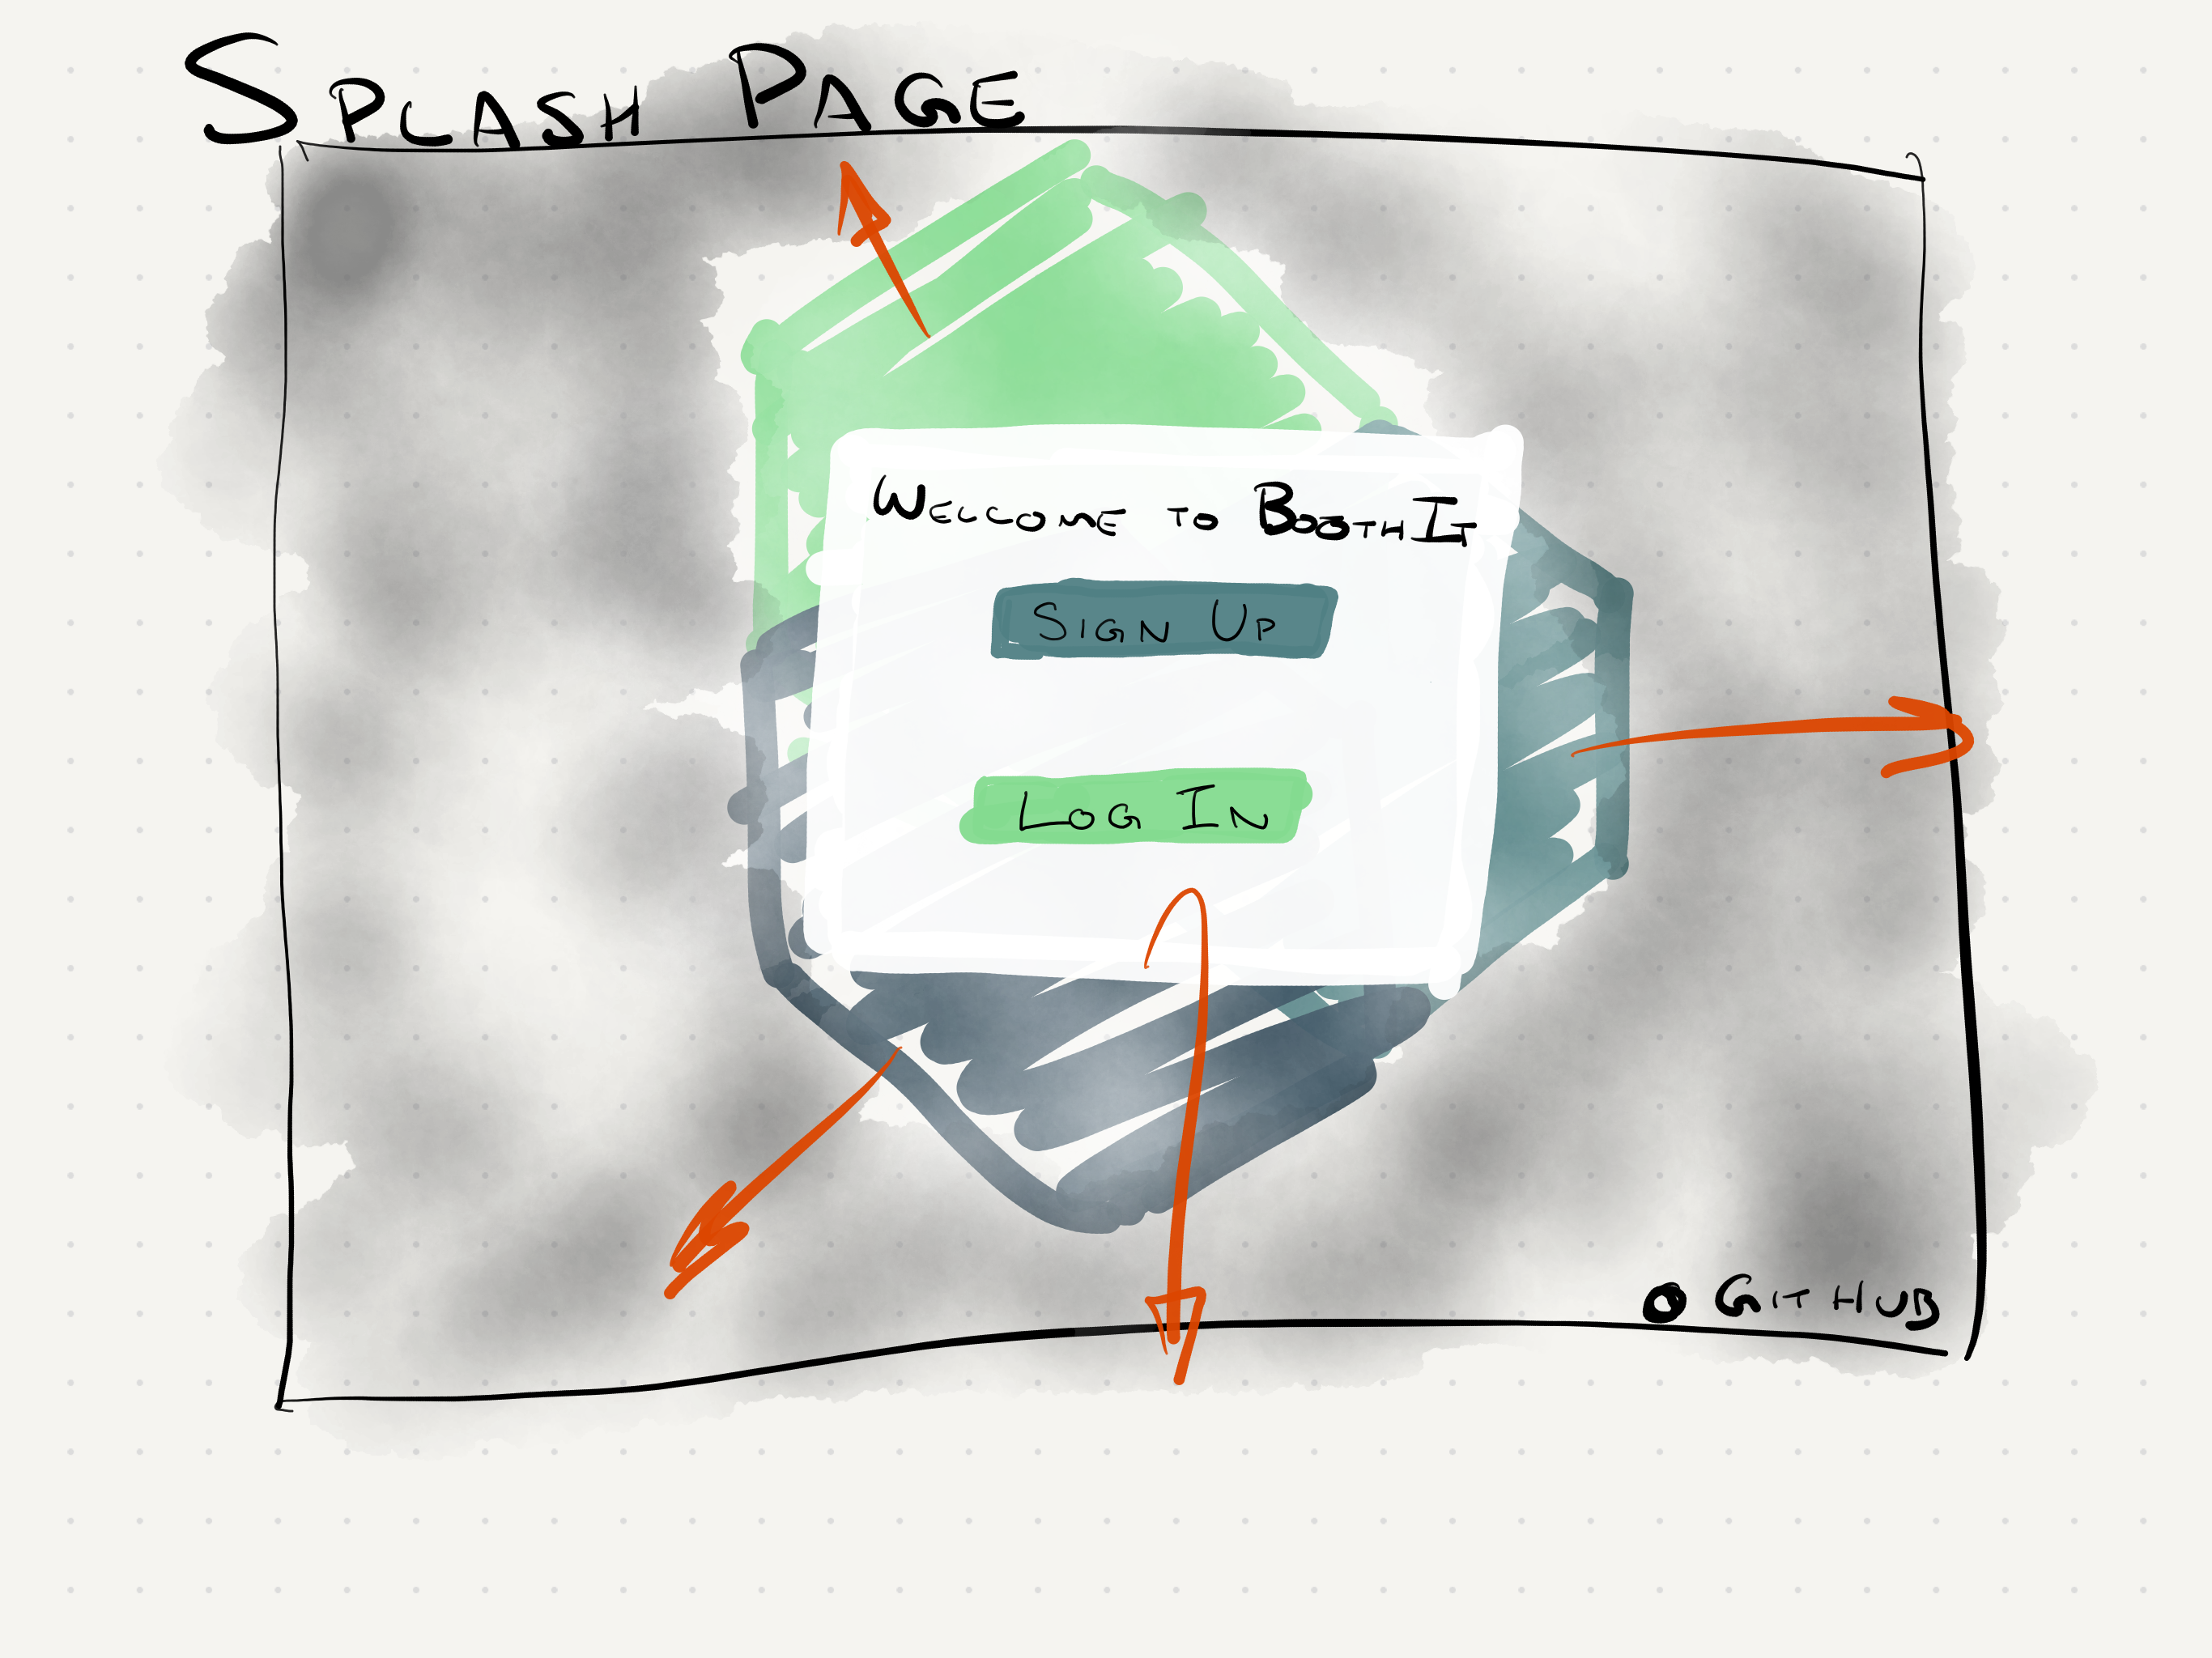 Splash Page
Welcome to BoothIt
Sign Up
Log In
GitHub